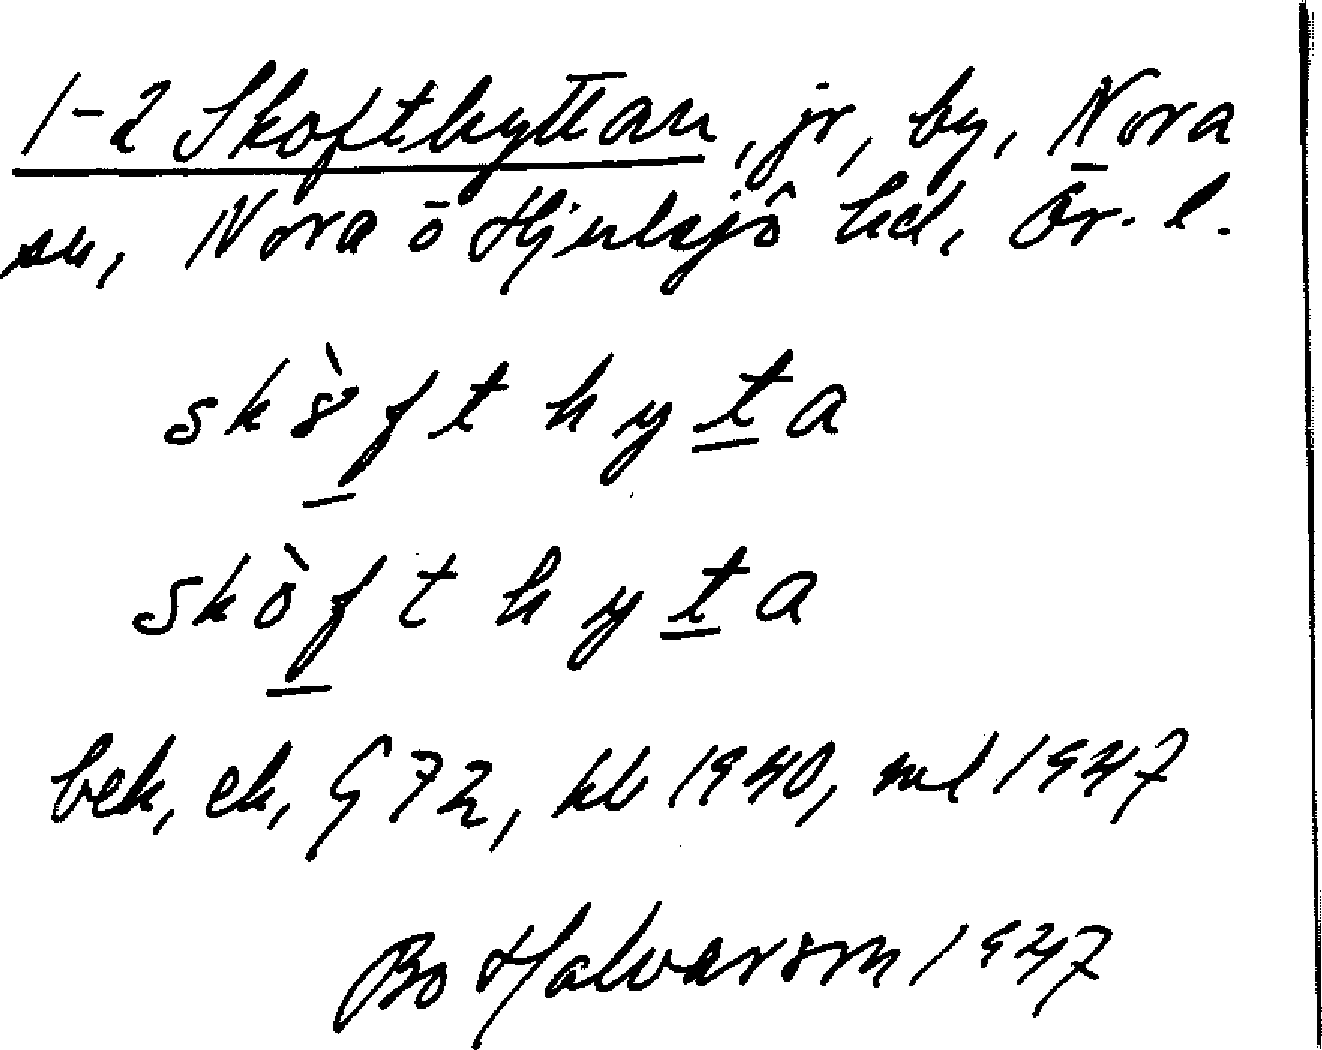 1-2 Skofthyttan, jr, by, Nora
sn, Nora o Hjulsjö hd, Ör. l.
sk8̀fthyta
skòfthyta
bek, ek, G 72, kb 1940, ml 1947
Bo Halvarson 1947